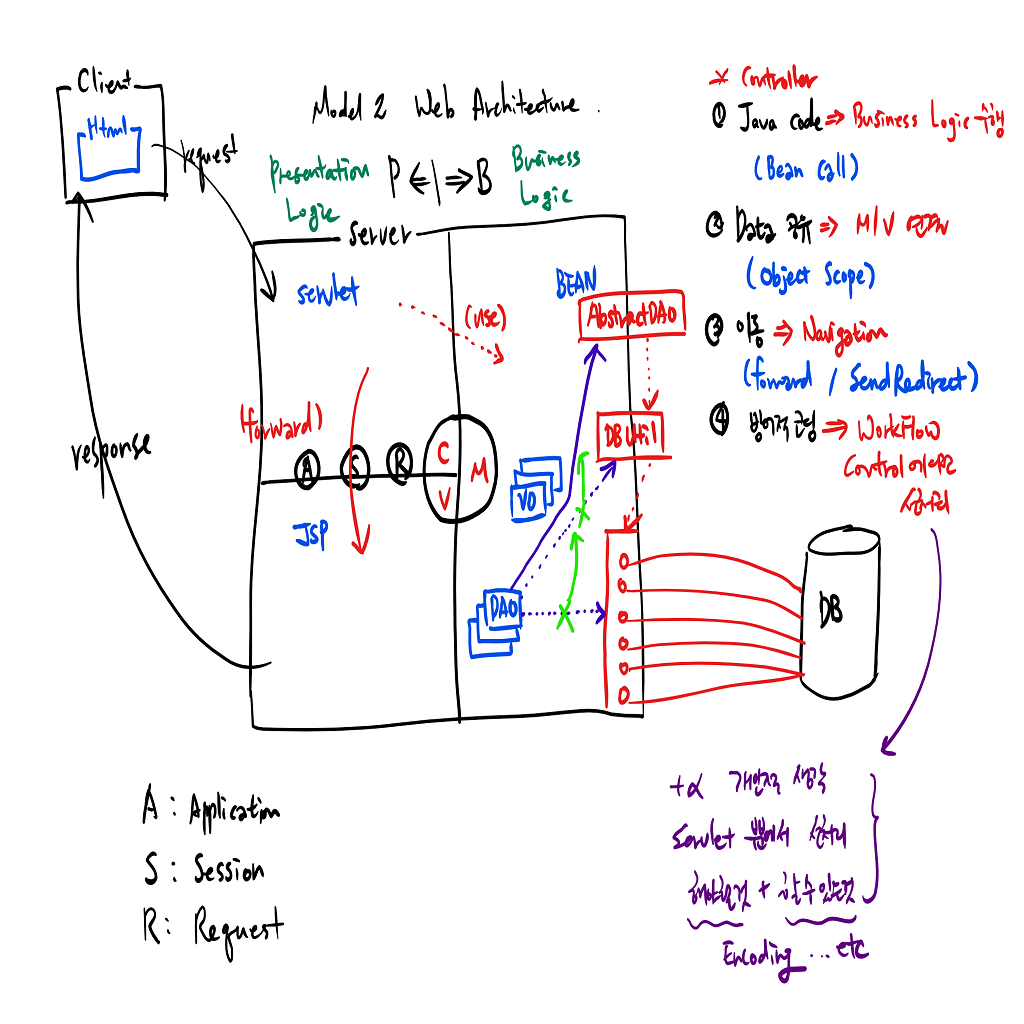 Client
Html
request
response
Model 2 Web Architecture.
Presentation Logic
P <=|=> B
Business Logic
Server
servlet
(use)
BEAN
AbstractDAO
DB Util
(forward)
A
S
R
C
V
M
JSP
VO
DAO
DB
* Controller
① Java code => Business Logic 수행
(Bean Call)
② Data 공유 => M/V 연계
(Object Scope)
③ 이동 => Navigation
(forward / SendRedirect)
④ => WorkFlow
Control
+α 개인적 생각
Servlet
해야할것 + 할수있는것
Encoding ... etc
A : Application
S : Session
R : Request